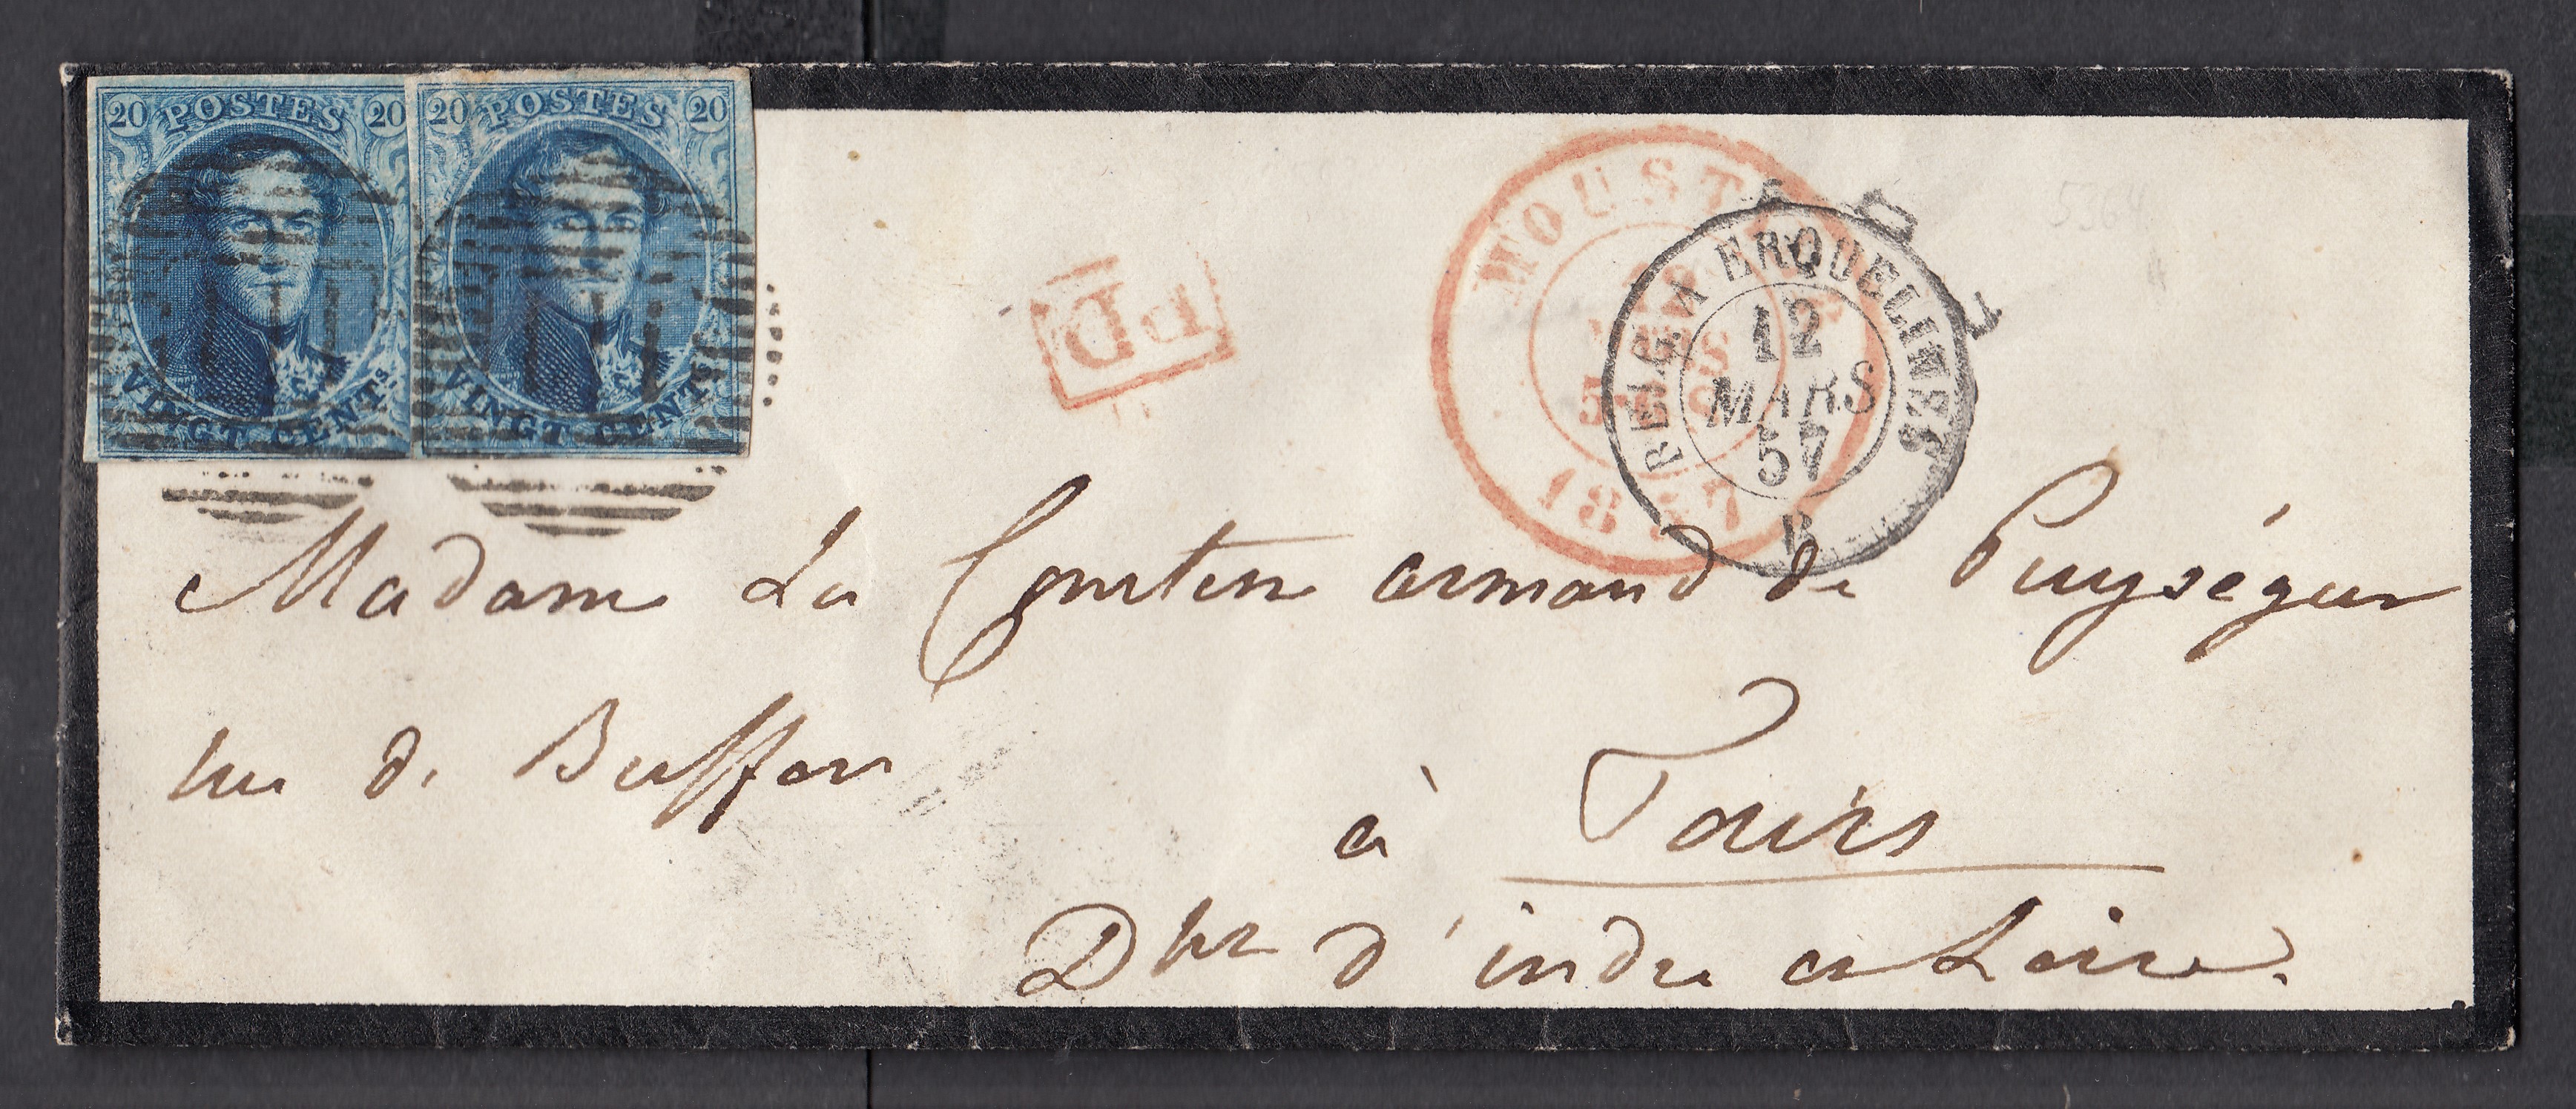 20 POSTES 20
VINGT CENTS
20 POSTES 20
VINGT CENTS
PD
MOUST
MARS
1857
BELG. A ERQUELINES
12
MARS
57
B
5364
Madame La Comtesse armand de Puységur
rue de Buffon
à Tours
Dpt d'indre et Loire.